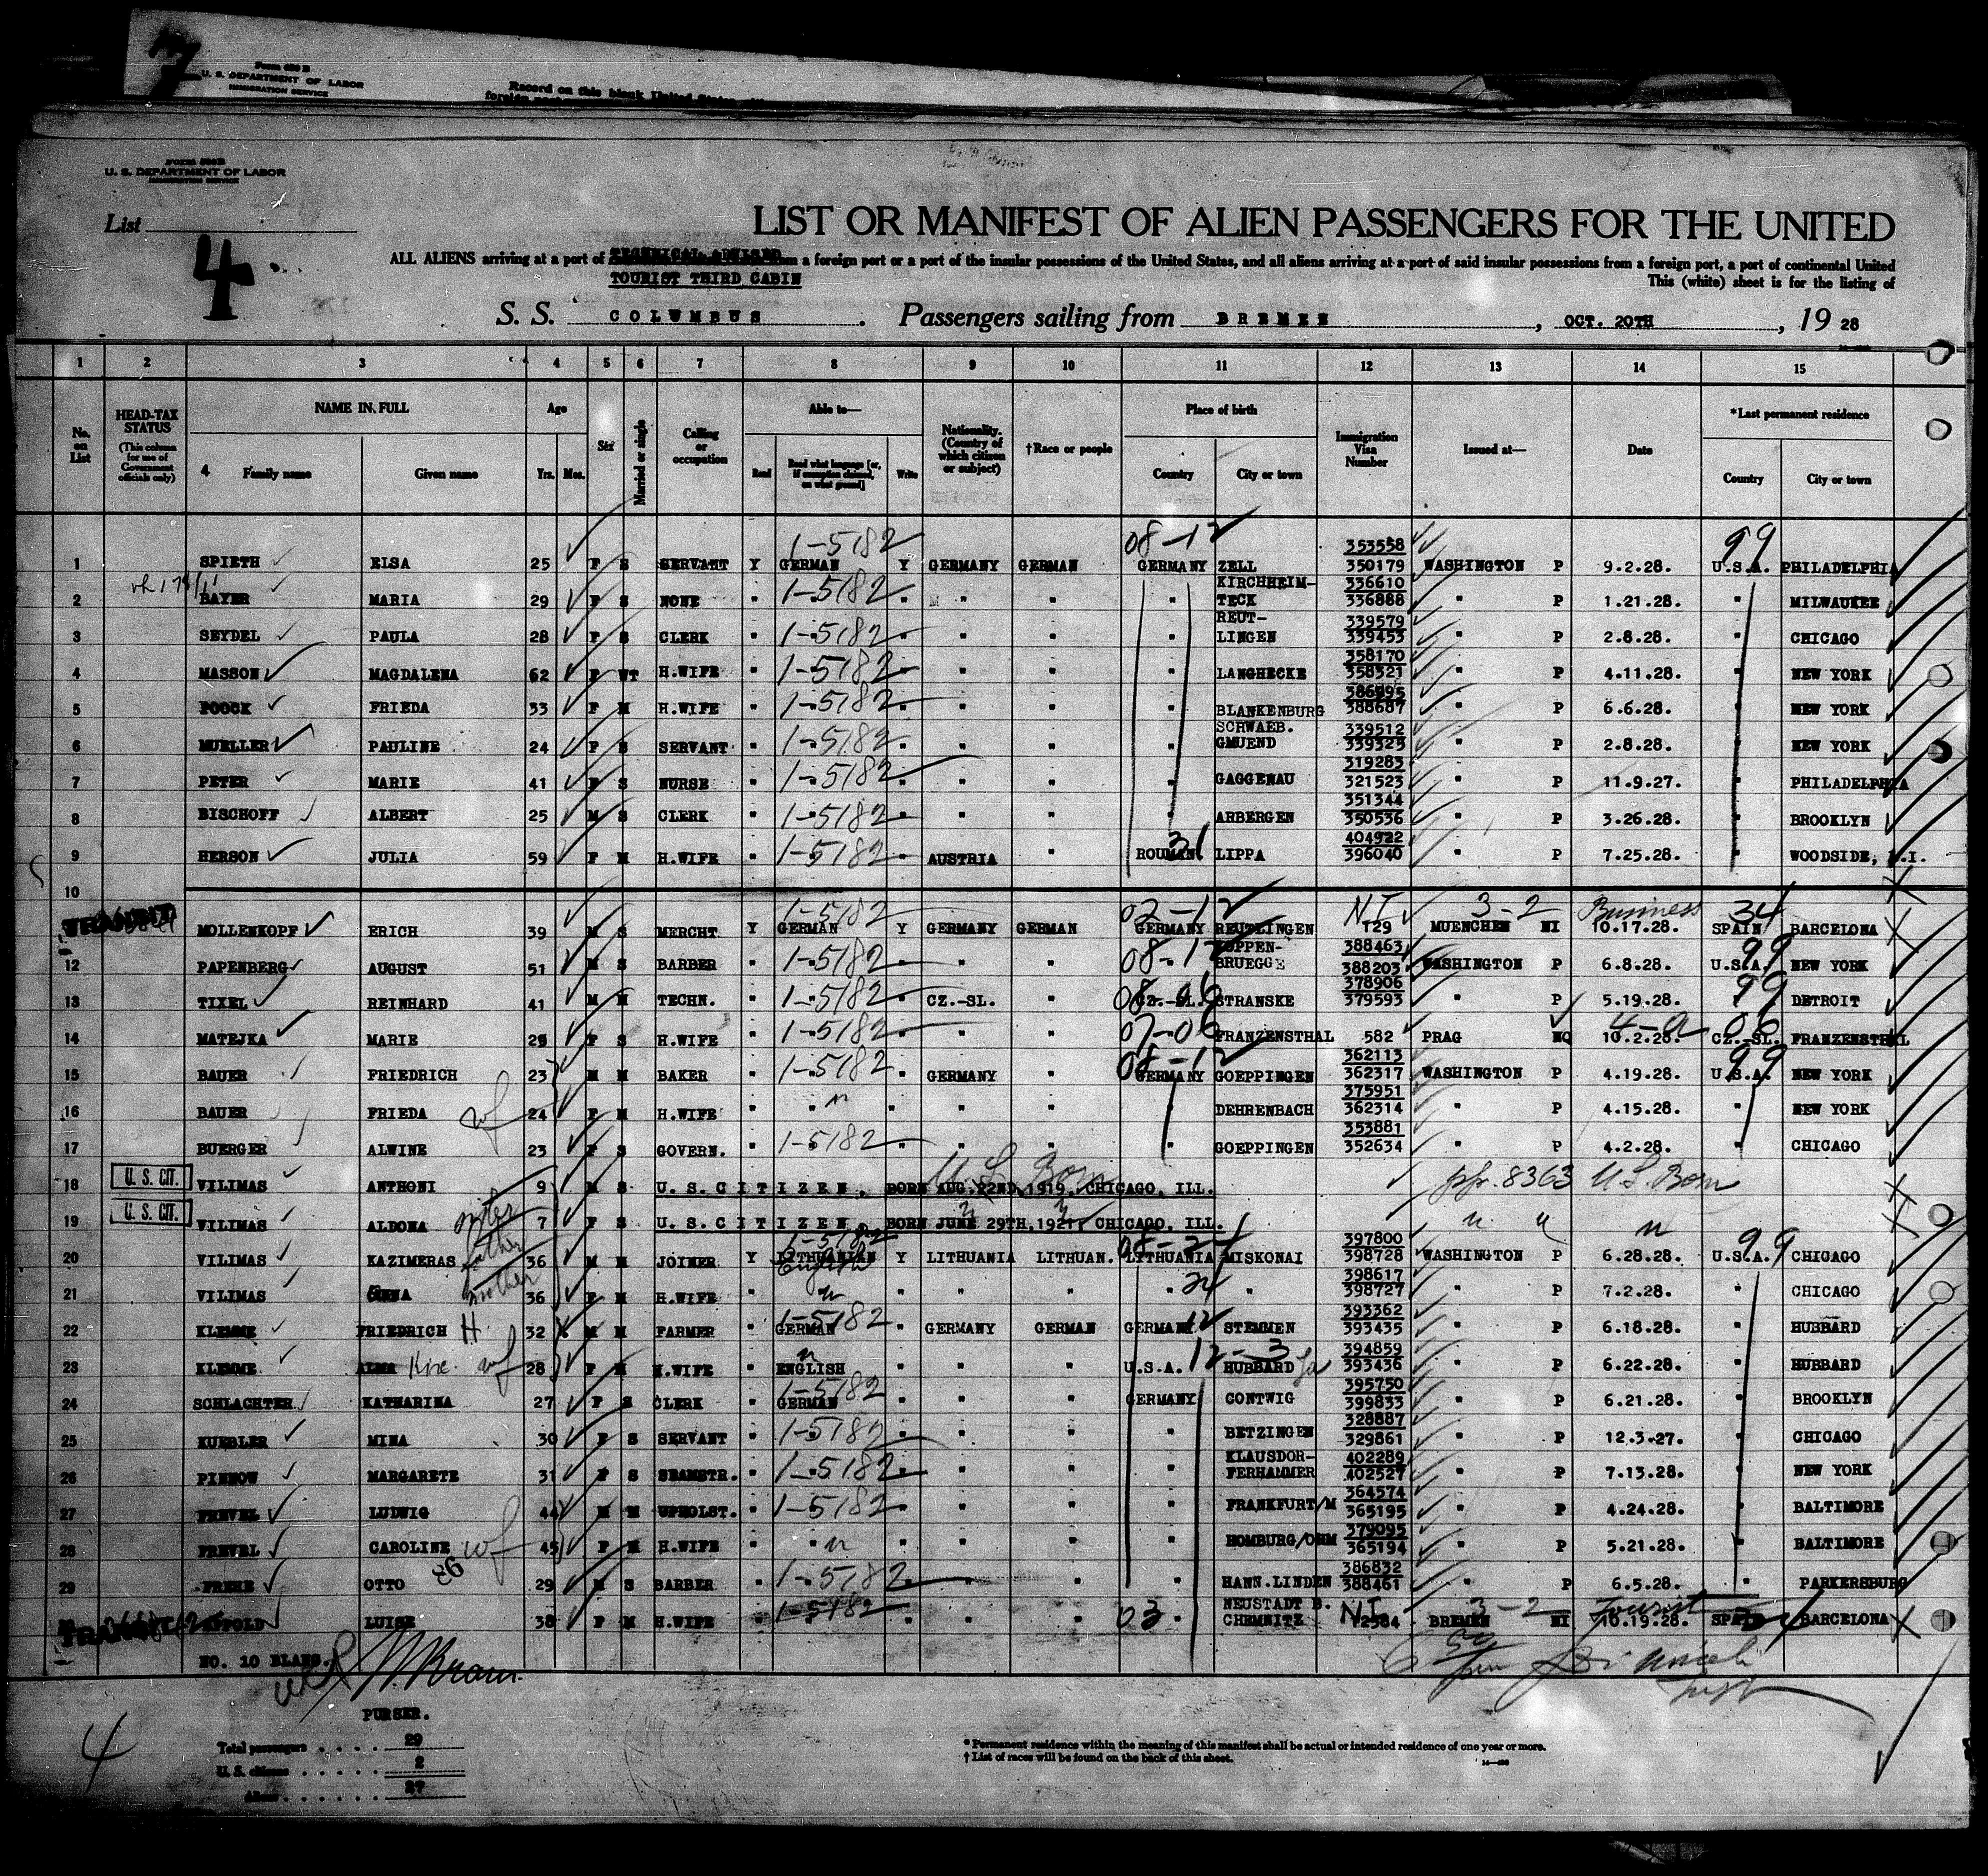 Form 500 B
U. S. DEPARTMENT OF LABOR
IMMIGRATION SERVICE
Record on this blank United States
U. S. DEPARTMENT OF LABOR
IMMIGRATION SERVICE
List
4
LIST OR MANIFEST OF ALIEN PASSENGERS FOR THE UNITED
ALL ALIENS arriving at a port of a foreign port or a port of the insular possessions of the United States, and all aliens arriving at a port of said insular possessions from a foreign port, a port of continental United
TOURIST THIRD CABIN
This (white) sheet is for the listing of
S. S. COLUMBUS. Passengers sailing from BREMEN, OCT. 20TH, 19 28
1 2 3 4 5 6 7 8 9 10 11 12 13 14 15
No. on List
HEAD-TAX STATUS (This column for use of Government officials only)
NAME IN FULL
4 Family name Given name
Age Yrs. Mos.
Sex
Married or single
Calling or occupation
Able to—
Read Read what language [or, if exemption claimed, on what ground] Write
Nationality. (Country of which citizen or subject)
†Race or people
Place of birth
Country City or town
Immigration Visa Number
Issued at—
Date
*Last permanent residence
Country City or town
1-5182 08-12 353558 99
1 SPIETH ELSA 25 F S SERVANT Y GERMAN Y GERMANY GERMAN GERMANY ZELL 350179 WASHINGTON P 9.2.28. U.S.A. PHILADELPHIA
1-5182 KIRCHHEIM- 336610
2 BAYER MARIA 29 F S NONE " " " " " " TECK 336888 " P 1.21.28. " MILWAUKEE
1-5182 REUT- 339579
3 SEYDEL PAULA 28 F S CLERK " " " " " " LINGEN 339453 " P 2.8.28. " CHICAGO
1-5182 358170
4 MASSON MAGDALENA 62 F WT H.WIFE " " " " " " LANGHECKE 358321 " P 4.11.28. " NEW YORK
1-5182 386995
5 POOCK FRIEDA 33 F M H.WIFE " " " " " " BLANKENBURG 388687 " P 6.6.28. " NEW YORK
1-5182 SCHWAEB. 339512
6 MUELLER PAULINE 24 F S SERVANT " " " " " " GMUEND 339325 " P 2.8.28. " NEW YORK
1-5182 319283
7 PETER MARIE 41 F S NURSE " " " " " " GAGGENAU 321523 " P 11.9.27. " PHILADELPHIA
1-5182 351344
8 BISCHOFF ALBERT 25 M S CLERK " " " " " " ARBERGEN 350536 " P 3.26.28. " BROOKLYN
1-5182 31 404922
9 HERSON JULIA 59 F M H.WIFE " " " AUSTRIA " ROUMAN. LIPPA 396040 " P 7.25.28. " WOODSIDE, L.I.
10
1-5182 02-12 NI 3-2 Business 34
TRANSIT MOLLENKOPF ERICH 39 M S MERCHT Y GERMAN Y GERMANY GERMAN GERMANY REUTLINGEN 129 MUENCHEN NI 10.17.28. SPAIN BARCELONA
1-5182 08-12 KOPPEN- 388463 99
12 PAPENBERG AUGUST 51 M S BARBER " " " " " BRUEGGE 388203 WASHINGTON P 6.8.28. U.S.A. NEW YORK
1-5182 08-06 378906 99
13 TIXEL REINHARD 41 M M TECHN. " " " CZ.-SL. " CZ.-SL. STRANSKE 379593 " P 5.19.28. " DETROIT
1-5182 07-06 4-a 06
14 MATEJKA MARIE 29 F S H.WIFE " " " " " FRANZENSTHAL 582 PRAG NQ 10.2.28. CZ.-SL. FRANZENSTHAL
1-5182 08-12 362113 99
15 BAUER FRIEDRICH 23 M M BAKER " " " GERMANY " GERMANY GOEPPINGEN 362317 WASHINGTON P 4.19.28. U.S.A. NEW YORK
375951
16 BAUER FRIEDA wf 24 F M H.WIFE " " " " " " DEHRENBACH 362314 " P 4.15.28. " NEW YORK
1-5182 353881
17 BUERGER ALWINE 23 F S GOVERN. " " " " " " GOEPPINGEN 352634 " P 4.2.28. " CHICAGO
U. S. CIT. U.S. Born
18 VILIMAS ANTHONI 9 M S U. S. CITIZEN, BORN AUG.22ND,1919, CHICAGO, ILL. 8363 U.S. Born
U. S. CIT.
19 VILIMAS ALDONA sister 7 F S U. S. CITIZEN, BORN JUNE 29TH,1921, CHICAGO, ILL. " " "
1-5182 397800 99
20 VILIMAS KAZIMERAS father 36 M M JOINER Y LITHUANIAN English Y LITHUANIA LITHUAN. LITHUANIA MISKONAI 398728 WASHINGTON P 6.28.28. U.S.A. CHICAGO
398617
21 VILIMAS mother 36 F M H.WIFE " " " " " " " 398727 " P 7.2.28. " CHICAGO
1-5182 12 393362
22 KLEMME FRIEDRICH H. 32 M M FARMER " GERMAN " GERMANY GERMAN GERMANY STEMMEN 393435 " P 6.18.28. " HUBBARD
12-3 394859
23 KLEMME ALMA wf 28 F M H.WIFE " ENGLISH " " " U.S.A. HUBBARD Ia 393436 " P 6.22.28. " HUBBARD
1-5182 395750
24 SCHLACHTER KATHARINA 27 F S CLERK " GERMAN " " " GERMANY CONTWIG 399833 " P 6.21.28. " BROOKLYN
1-5182 328887
25 KUEBLER MINA 30 F S SERVANT " " " " " " BETZINGEN 329861 " P 12.3.27. " CHICAGO
1-5182 KLAUSDOR- 402289
26 PINNOW MARGARETE 31 F S SEAMSTR. " " " " " " FERHAMMER 402527 " P 7.13.28. " NEW YORK
1-5182 364574
27 FREVEL LUDWIG 44 M M UPHOLST. " " " " " " FRANKFURT/M 365195 " P 4.24.28. " BALTIMORE
379095
28 FREVEL CAROLINE wf 45 F M H.WIFE " " " " " " HOMBURG/OHM 365194 " P 5.21.28. " BALTIMORE
1-5182 386832
29 FREHE OTTO 29 M S BARBER " " " " " " HANN.LINDEN 388461 " P 6.5.28. " PARKERSBURG
1-5182 03 NEUSTADT B. NI 3-2 Tourist
TRANSIT LUISE 38 F M H.WIFE " " " " " " CHEMNITZ 12584 BREMEN NI 10.19.28. SPAIN BARCELONA
NO. 10 BLANK.
PURSER.
4
Total passengers . . . . 29
U. S. citizens . . . . 2
Aliens . . . . 27
* Permanent residence within the meaning of this manifest shall be actual or intended residence of one year or more.
† List of races will be found on the back of this sheet.